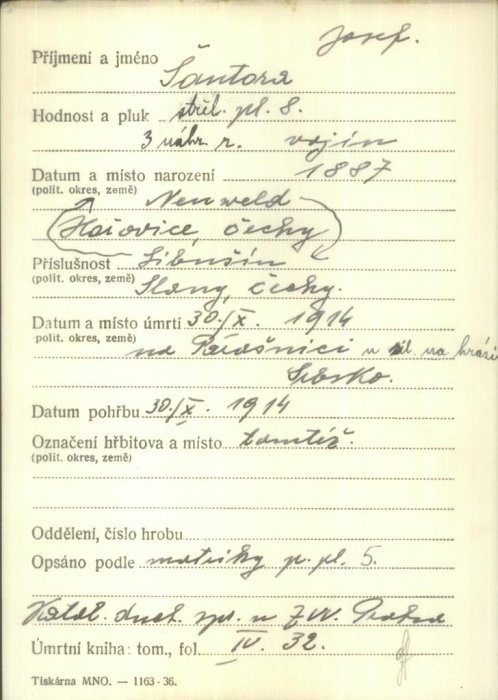 Josef.
Příjmení a jméno Šantora
Hodnost a pluk střel. pl. 8.
3 náhr. r. vojín
Datum a místo narození 1887
(polit. okres, země) Neuweld
Hořovice, Čechy
Příslušnost Libušín
(polit. okres, země) Slaný, Čechy.
Datum a místo úmrtí 30./X. 1914
polit. okres, země)
na u na
Srbsko.
Datum pohřbu 30./X. 1914
Označení hřbitova a místo tamtéž.
(polit. okres, země)
Oddělení, číslo hrobu
Opsáno podle matriky p. pl. 5.
Katol. duch. spr. u ZVV. Praha
Úmrtní kniha: tom., fol. IV. 32.
Tiskárna MNO. — 1163-36.